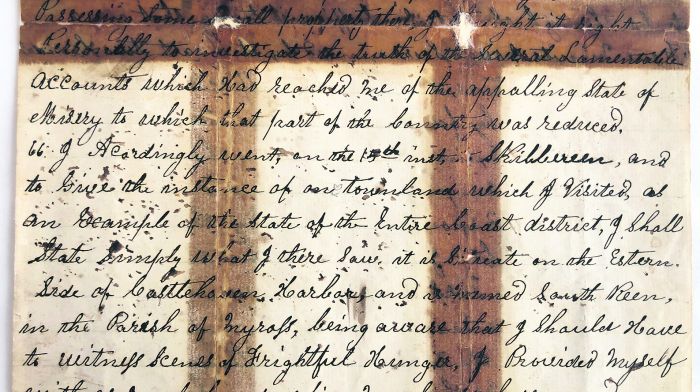 Possessing Some small property there, I thought it right
Personally to investigate the truth of the Several Lamentable
Accounts which Had reached me of the appalling State of
Misery to which that part of the Country was reduced.
66. I Acordingly went, on the 15th inst, Skibbereen, and
to Give the instance of on townland which I Visited, as
an Example of the State of the Entire Coast district, I Shall
State Simply what I there Saw. it is Situate on the Estern
Side of Castlehaven Harbour, and is named South Reen,
in the Parish of Myross, being aware that I Should Have
to witness Scenes of Frightful Hunger, I Provided Myself
with as